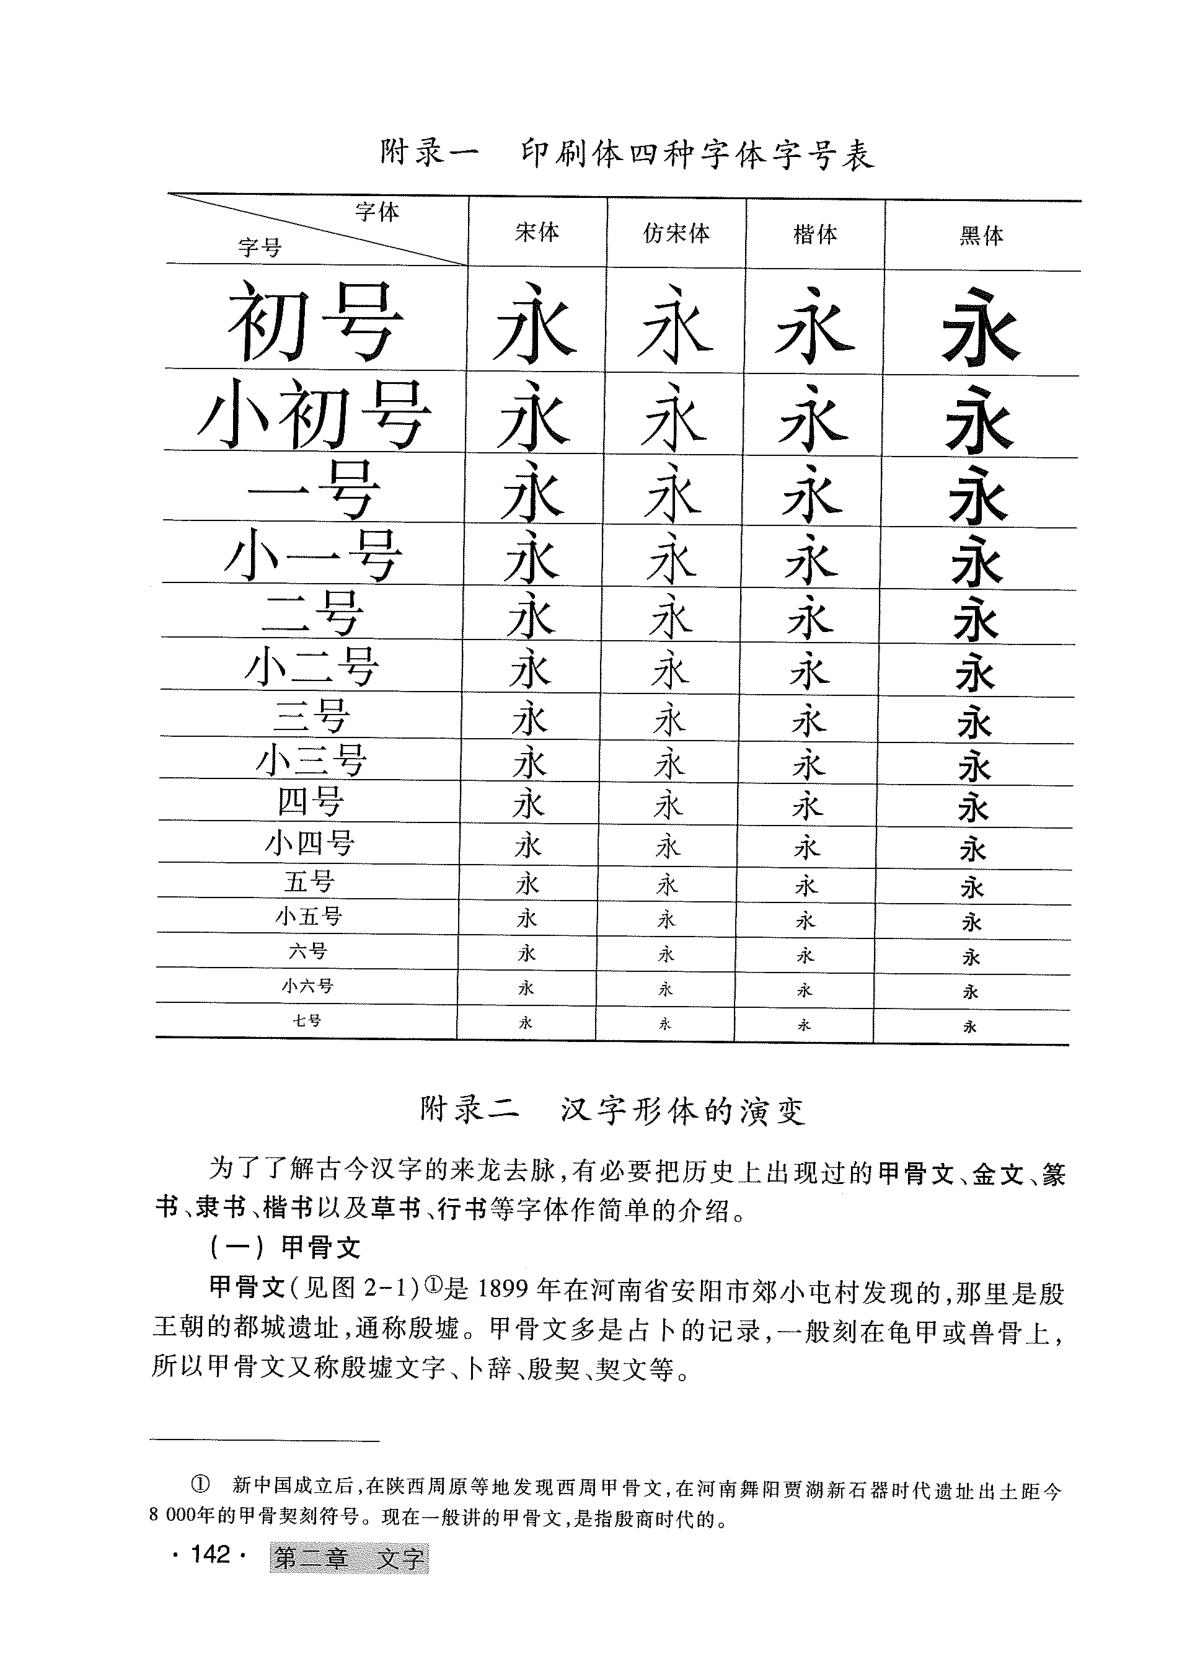 附录一　印刷体四种字体字号表
字体
字号 宋体 仿宋体 楷体 黑体
初号 永 永 永 永
小初号 永 永 永 永
一号 永 永 永 永
小一号 永 永 永 永
二号 永 永 永 永
小二号 永 永 永 永
三号 永 永 永 永
小三号 永 永 永 永
四号 永 永 永 永
小四号 永 永 永 永
五号 永 永 永 永
小五号 永 永 永 永
六号 永 永 永 永
小六号 永 永 永 永
七号 永 永 永 永
附录二　汉字形体的演变
为了了解古今汉字的来龙去脉,有必要把历史上出现过的甲骨文、金文、篆
书、隶书、楷书以及草书、行书等字体作简单的介绍。
(一)甲骨文
甲骨文(见图2-1)①是1899年在河南省安阳市郊小屯村发现的,那里是殷
王朝的都城遗址,通称殷墟。甲骨文多是占卜的记录,一般刻在龟甲或兽骨上,
所以甲骨文又称殷墟文字、卜辞、殷契、契文等。
①　新中国成立后,在陕西周原等地发现西周甲骨文,在河南舞阳贾湖新石器时代遗址出土距今
8 000年的甲骨契刻符号。现在一般讲的甲骨文,是指殷商时代的。
·142· 第二章　文字